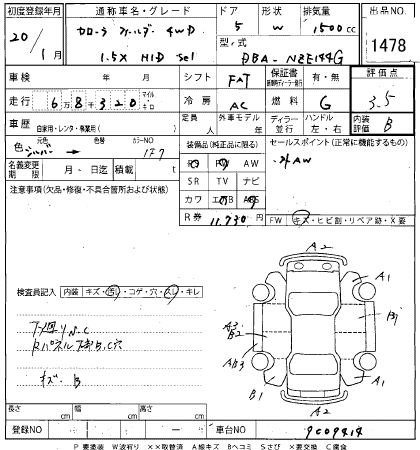 初度登録年月 通称車名・グレード ドア 形状 排気量 出品No.
20/1月 カローラ フィールダー 4WD 5 W 1500cc 1478
1.5X HID Sel 型式 DBA-NZE144G
車検 年 月 シフト FAT 保証書 有・無 評価点
走行 6 8 3 2 0 マイル キロ 冷房 AC 燃料 G 3.5
車歴 自家用・レンタ・積業用( ) 定員 人 外車モデル 年 ディーラー 並行 ハンドル 左・右 内装評価 B
色 元色 シルバー 色替 カラーNo 1F7 装備品(純正品に限る) セールスポイント(正常に機能するもの)
名義変更期限 月 日迄 積載 t PS PW AW ・外AW
注意事項(欠品・修復・不具合箇所および状態) SR TV ナビ
カワ エアB ABS
R券 11,730円 FW キズ・ヒビ割・リペア跡・X要
検査員記入 内装 キズ・汚レ・コゲ・穴・スレ・キレ
Rパネル
キズ・B
A2
A1
A3
B2
AB3
B1
A1
A2
長さ cm 幅 cm 高さ cm
登録NO 車台NO 9009414
P 要塗装 W波有り ××取替済 A線キズ Bヘコミ Sさび ×要交換 C腐食